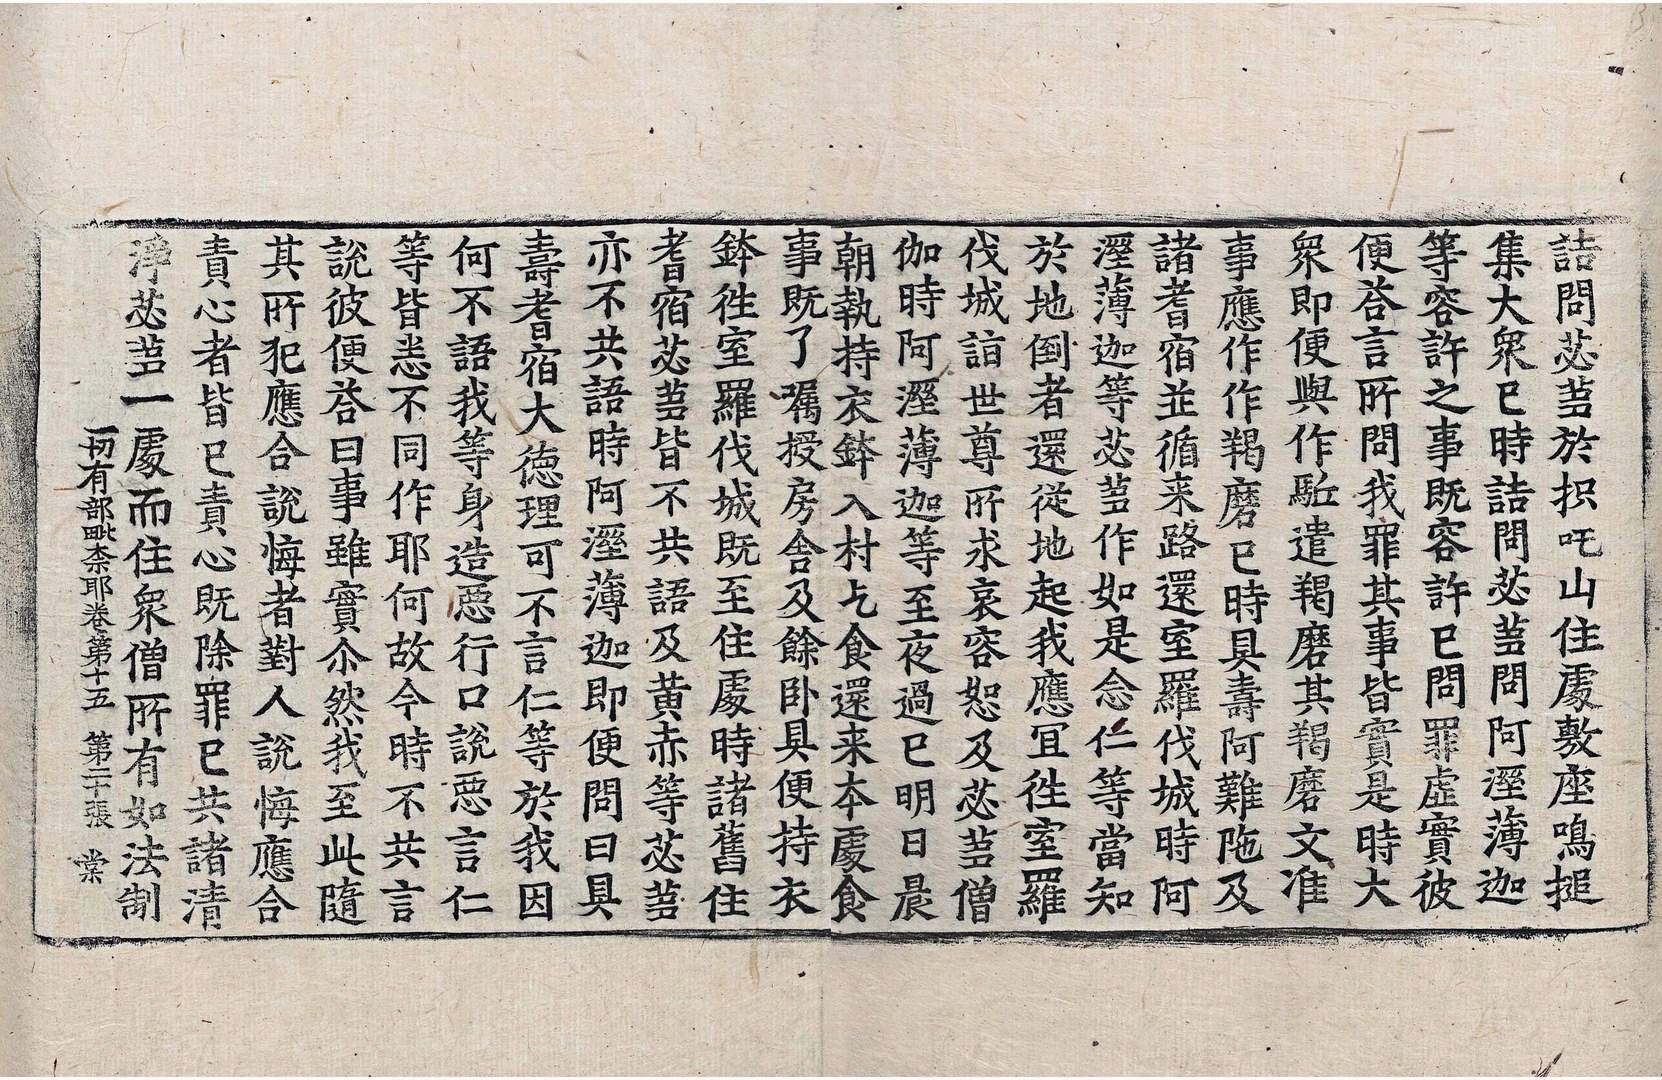 詰問苾蒭於抧吒山住處敷座鳴搥
集大衆已時詰問苾蒭問阿溼薄迦
等容許之事既容許已問罪虛實彼
便荅言所問我罪其事皆實是時大
衆即便與作駈遣羯磨其羯磨文准
事應作作羯磨已時具壽阿難陁及
諸耆宿並循来路還室羅伐城時阿
溼薄迦等苾蒭作如是念仁等當知
於地倒者還從地起我應冝徃室羅
伐城詣世尊所求哀容恕及苾蒭僧
伽時阿溼薄迦等至夜過已明日晨
朝執持衣鉢入村乞食還来本處食
事既了囑授房舎及餘卧具便持衣
鉢徃室羅伐城既至住處時諸舊住
耆宿苾蒭皆不共語及黄赤等苾蒭
亦不共語時阿溼薄迦即便問曰具
壽耆宿大德理可不言仁等於我因
何不語我等身造惡行口說惡言仁
等皆悉不同作耶何故今時不共言
說彼便荅曰事雖實尒然我至此隨
其所犯應合說悔者對人說悔應合
責心者皆已責心既除罪已共諸清
淨苾蒭一處而住衆僧所有如法制
一切有部毗柰耶卷第十五 第二十張 棠